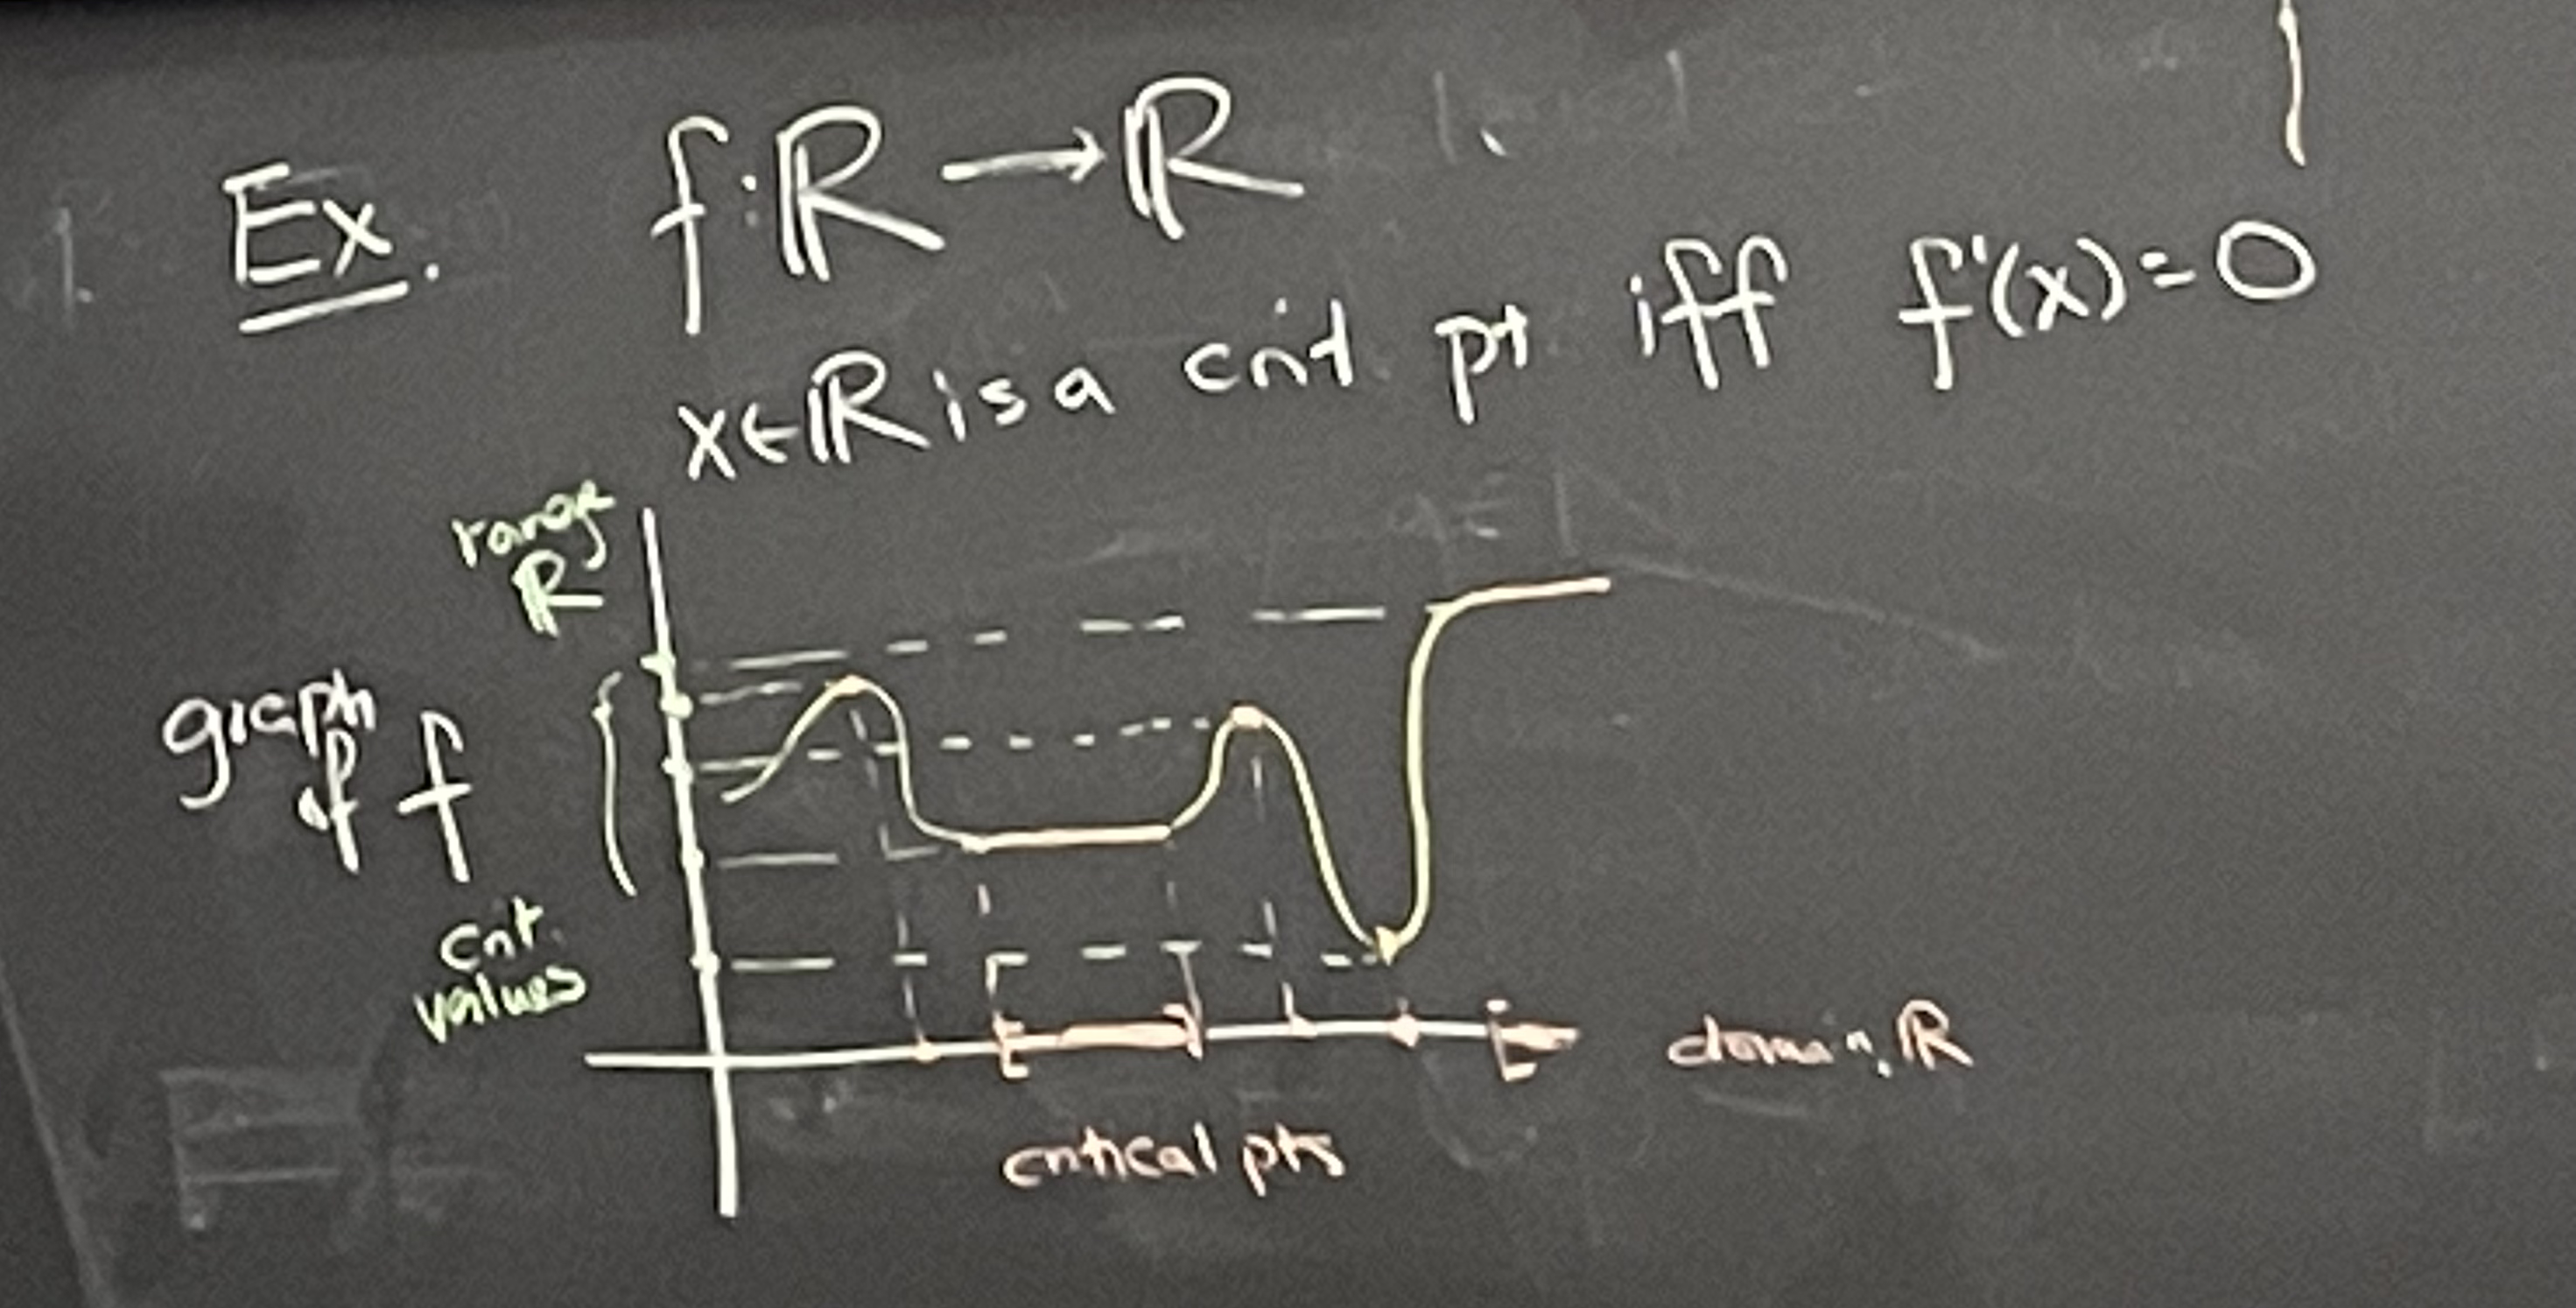 Ex. f: ℝ → ℝ
x∈ℝ is a crit pt iff f'(x)=0
range
ℝ
graph
of f
crit.
values
domain ℝ
critical pts